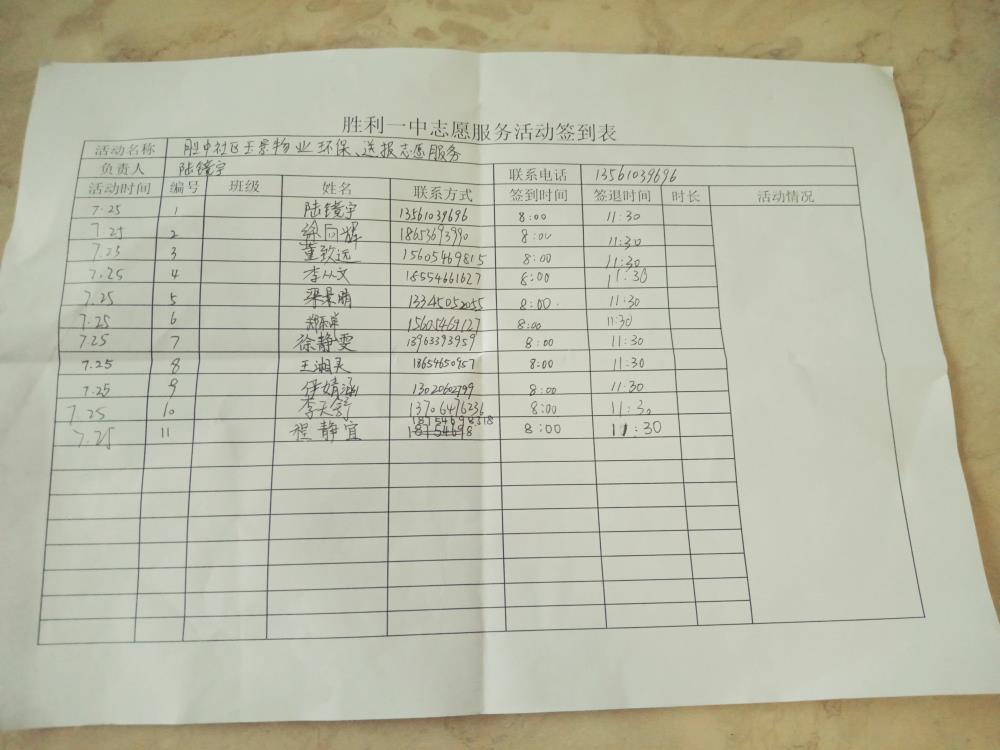 胜利一中志愿服务活动签到表
活动名称 胜中社区玉景物业环保、送报志愿服务
负责人 陆镜宇 联系电话 13561039696
活动时间 编号 班级 姓名 联系方式 签到时间 签退时间 时长 活动情况
7.25 1 陆镜宇 13561039696 8:00 11:30
7.25 2 徐向辉 18653693990 8:00 11:30
7.25 3 董致远 15605469815 8:00 11:30
7.25 4 李从文 18554661627 8:00 11:30
7.25 5 梁景晴 13345052055 8:00 11:30
7.25 6 15605469127 8:00 11:30
7.25 7 徐静雯 13963393959 8:00 11:30
7.25 8 王湘灵 18654650957 8:00 11:30
7.25 9 任婧涵 13020602799 8:00 11:30
7.25 10 李天舒 13706476236 8:00 11:30
7.25 11 程静宜 18754698318 8:00 11:30